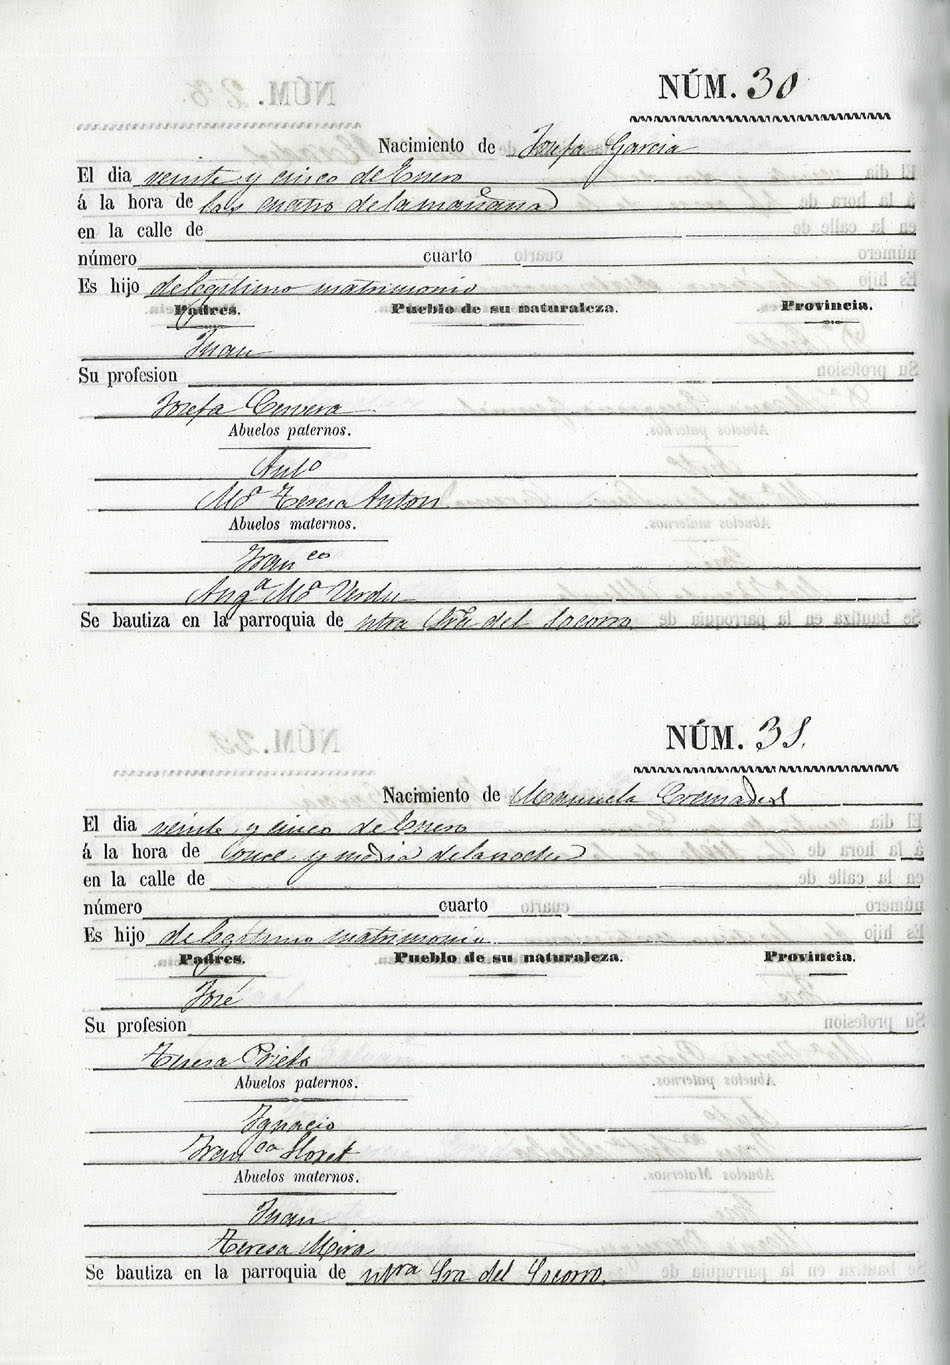 NÚM. 30
Nacimiento de Josefa Garcia
El dia veinte y cinco de Enero
á la hora de las cuatro de la mañana
en la calle de
número cuarto
Es hijo de legitimo matrimonio
Padres. Pueblo de su naturaleza. Provincia.
Juan
Su profesion
Josefa Cervera
Abuelos paternos.
Antº
Mª Teresa Anton
Abuelos maternos.
Franco
Angª Mª Verdu
Se bautiza en la parroquia de ntra Sra del Socorro
NÚM. 31.
Nacimiento de Manuela Cremades
El dia veinte y cinco de Enero
á la hora de once y media de la noche
en la calle de
número cuarto
Es hijo de legitimo matrimonio
Padres. Pueblo de su naturaleza. Provincia.
José
Su profesion
Teresa Prieto
Abuelos paternos.
Ignacio
Franca Lloret
Abuelos maternos.
Juan
Teresa Mira
Se bautiza en la parroquia de ntra Sra del Socorro.